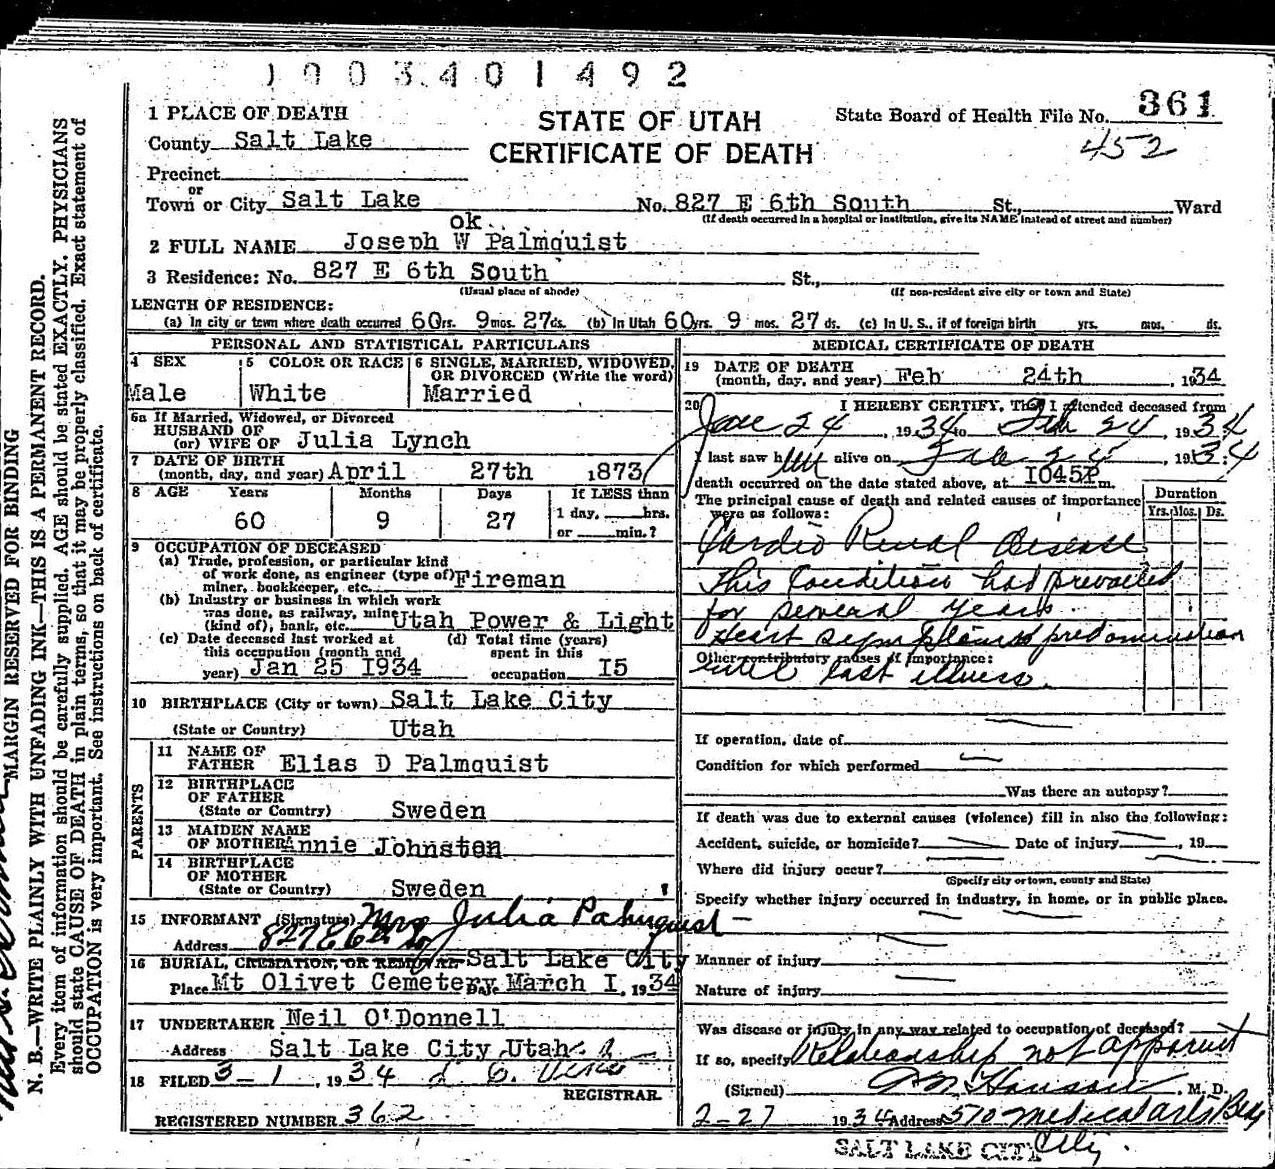 1 0 0 3 4 0 1 4 9 2
1 PLACE OF DEATH
County Salt Lake
STATE OF UTAH
CERTIFICATE OF DEATH
State Board of Health File No. 361
452
Precinct
or
Town or City Salt Lake No. 827 E 6th South St., Ward
(If death occurred in a hospital or institution, give its NAME instead of street and number)
ok
2 FULL NAME Joseph W Palmquist
3 Residence: No. 827 E 6th South St.,
(Usual place of abode) (If non-resident give city or town and State)
LENGTH OF RESIDENCE:
(a) In city or town where death occurred 60 yrs. 9 mos. 27 ds. (b) In Utah 60 yrs. 9 mos. 27 ds. (c) In U. S., if of foreign birth yrs. mos. ds.
PERSONAL AND STATISTICAL PARTICULARS
4 SEX
Male
5 COLOR OR RACE
White
6 SINGLE, MARRIED, WIDOWED, OR DIVORCED (Write the word)
Married
6a If Married, Widowed, or Divorced
HUSBAND OF
(or) WIFE OF Julia Lynch
7 DATE OF BIRTH
(month, day, and year) April 27th 1873
8 AGE Years Months Days If LESS than
60 9 27 1 day, hrs.
or min.?
9 OCCUPATION OF DECEASED
(a) Trade, profession, or particular kind
of work done, as engineer (type of) Fireman
miner, bookkeeper, etc.
(b) Industry or business in which work
was done, as railway, mine
(kind of), bank, etc. Utah Power & Light
(c) Date deceased last worked at
this occupation (month and
year) Jan 25 I934
(d) Total time (years)
spent in this
occupation I5
10 BIRTHPLACE (City or town) Salt Lake City
(State or Country) Utah
PARENTS
11 NAME OF
FATHER Elias D Palmquist
12 BIRTHPLACE
OF FATHER
(State or Country) Sweden
13 MAIDEN NAME
OF MOTHER Annie Johnston
14 BIRTHPLACE
OF MOTHER
(State or Country) Sweden
15 INFORMANT (Signature) Mrs Julia Palmquist
Address 827 E 6th So
16 BURIAL, CREMATION, OR REMOVAL Salt Lake City
Place Mt Olivet Cemetery Date March I, 1934
17 UNDERTAKER Neil O'Donnell
Address Salt Lake City Utah
18 FILED 3-1, 1934
REGISTRAR
REGISTERED NUMBER 362
MEDICAL CERTIFICATE OF DEATH
19 DATE OF DEATH
(month, day, and year) Feb 24th, 1934
20 I HEREBY CERTIFY, That I attended deceased from
Jan 24, 1934 to Feb 24, 1934
I last saw him alive on Feb 24, 1934
death occurred on the date stated above, at I045P m.
The principal cause of death and related causes of importance
were as follows:
Duration
Yrs. Mos. Ds.
Cardio Renal Disease
This Condition had prevailed
for several years.
Heart symptoms predomination
Other contributory causes of importance:
until last illness.
If operation, date of
Condition for which performed
Was there an autopsy?
If death was due to external causes (violence) fill in also the following:
Accident, suicide, or homicide? Date of injury, 19
Where did injury occur?
(Specify city or town, county and State)
Specify whether injury occurred in industry, in home, or in public place.
Manner of injury
Nature of injury
Was disease or injury in any way related to occupation of deceased?
If so, specify Relationship not apparent
(Signed) , M. D.
2-27 1934 Address 510 Medical Arts Bldg
SALT LAKE CITY City.
MARGIN RESERVED FOR BINDING
N. B.—WRITE PLAINLY WITH UNFADING INK—THIS IS A PERMANENT RECORD.
Every item of information should be carefully supplied. AGE should be stated EXACTLY. PHYSICIANS
should state CAUSE OF DEATH in plain terms, so that it may be properly classified. Exact statement of
OCCUPATION is very important. See instructions on back of certificate.